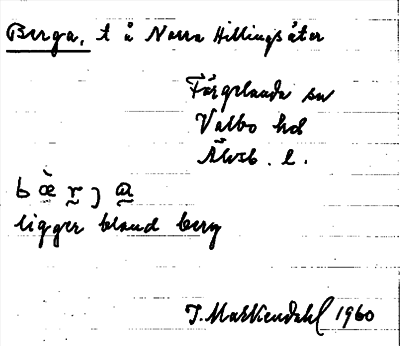 Berga, t å Norra Hillingsäter
Färgelanda sn
Valbo hd
Älvsb. l.
ligger bland berg
J. Markendahl 1960